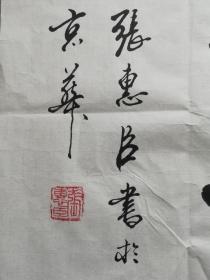 張惠臣書於
京華